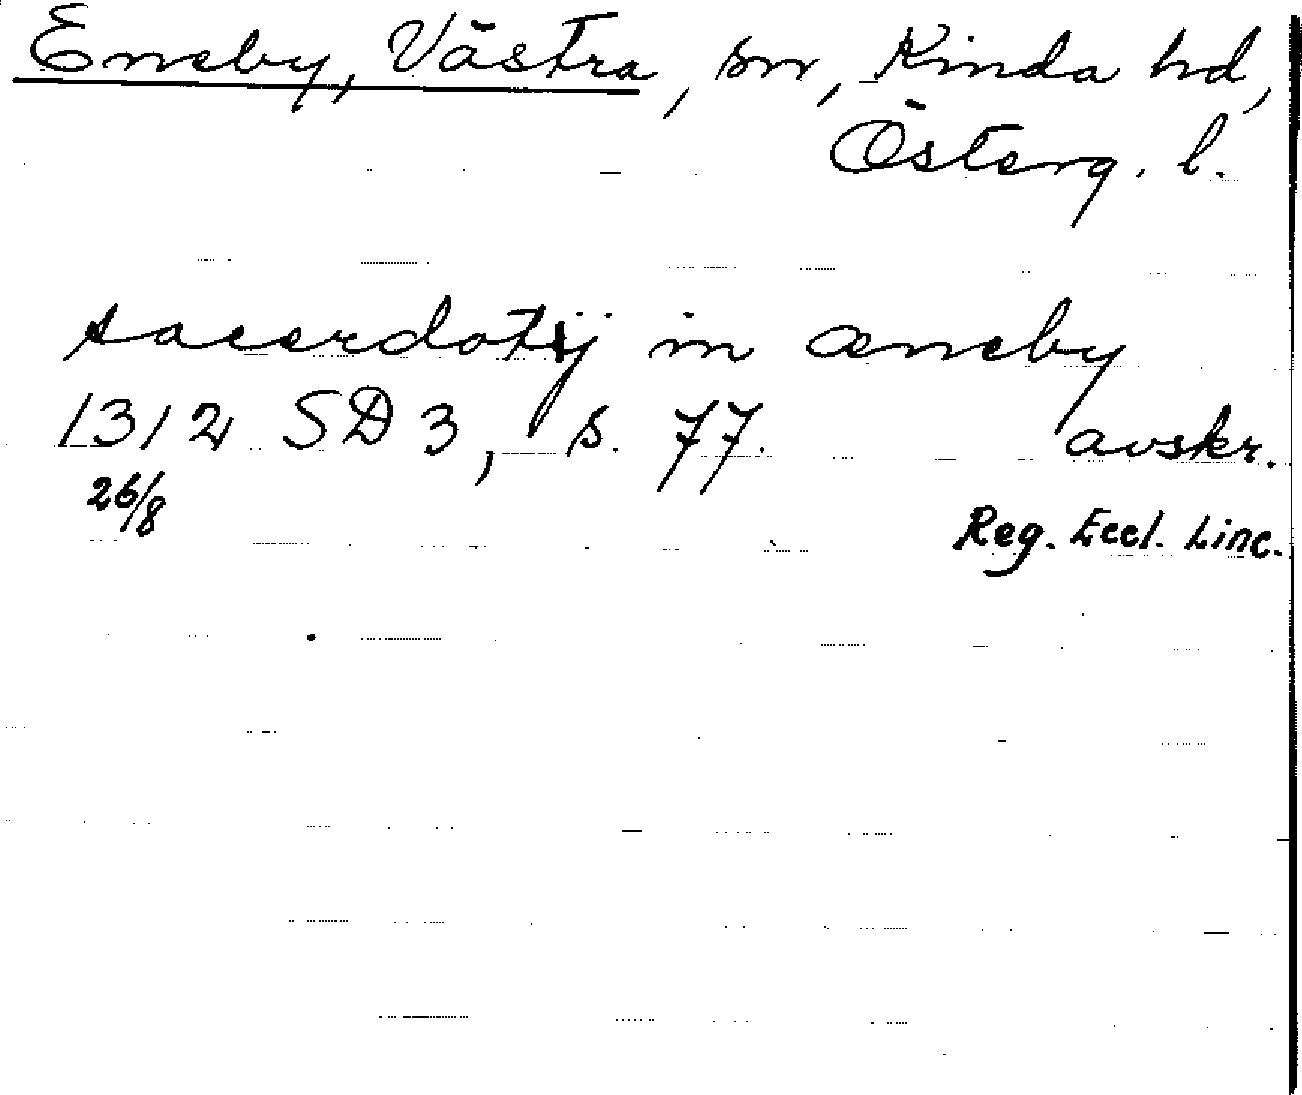 Eneby, Västra, sn, Kinda hd,
Österg. l.
sacerdotij in æneby
1312 SD 3, s. 77. avskr.
26/8
Reg. Eccl. Linc.